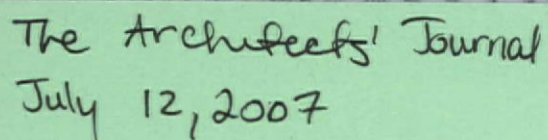 The Architects' Journal
July 12, 2007